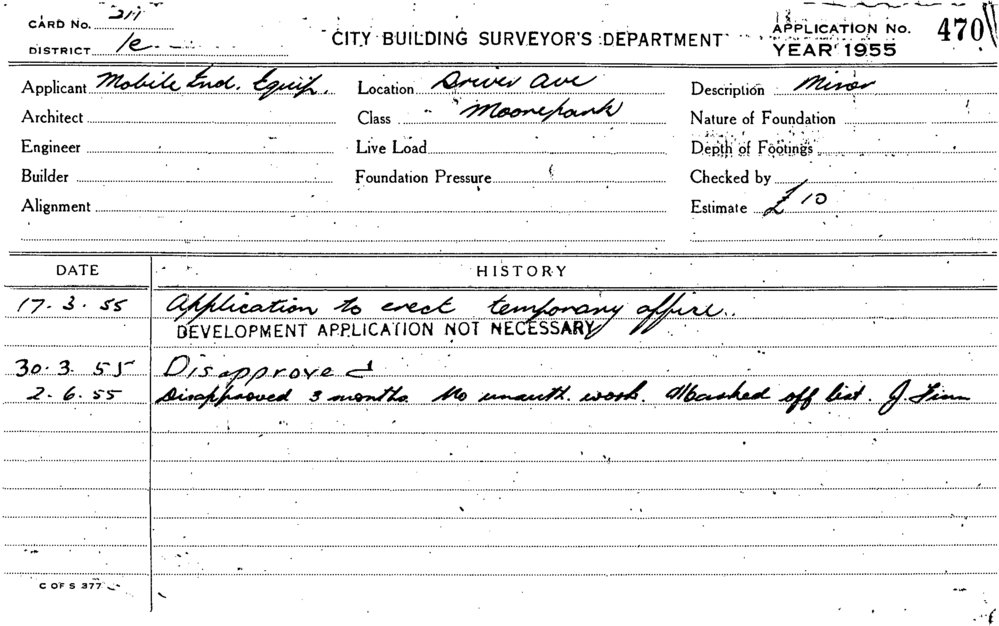 CARD No. 211
DISTRICT 1e
CITY BUILDING SURVEYOR'S DEPARTMENT
APPLICATION No. 470
YEAR 1955
Applicant Mobile Ind. Equip. Location Driver Ave Description Minor
Architect Class Moorepark Nature of Foundation
Engineer Live Load Depth of Footings
Builder Foundation Pressure Checked by
Alignment Estimate £10
DATE HISTORY
17. 3. 55 Application to erect temporary office.
DEVELOPMENT APPLICATION NOT NECESSARY
30. 3. 55 Disapproved
2. 6. 55 Disapproved 3 months. No unauth. work. Marked off list. J. Finn
C OF S 377